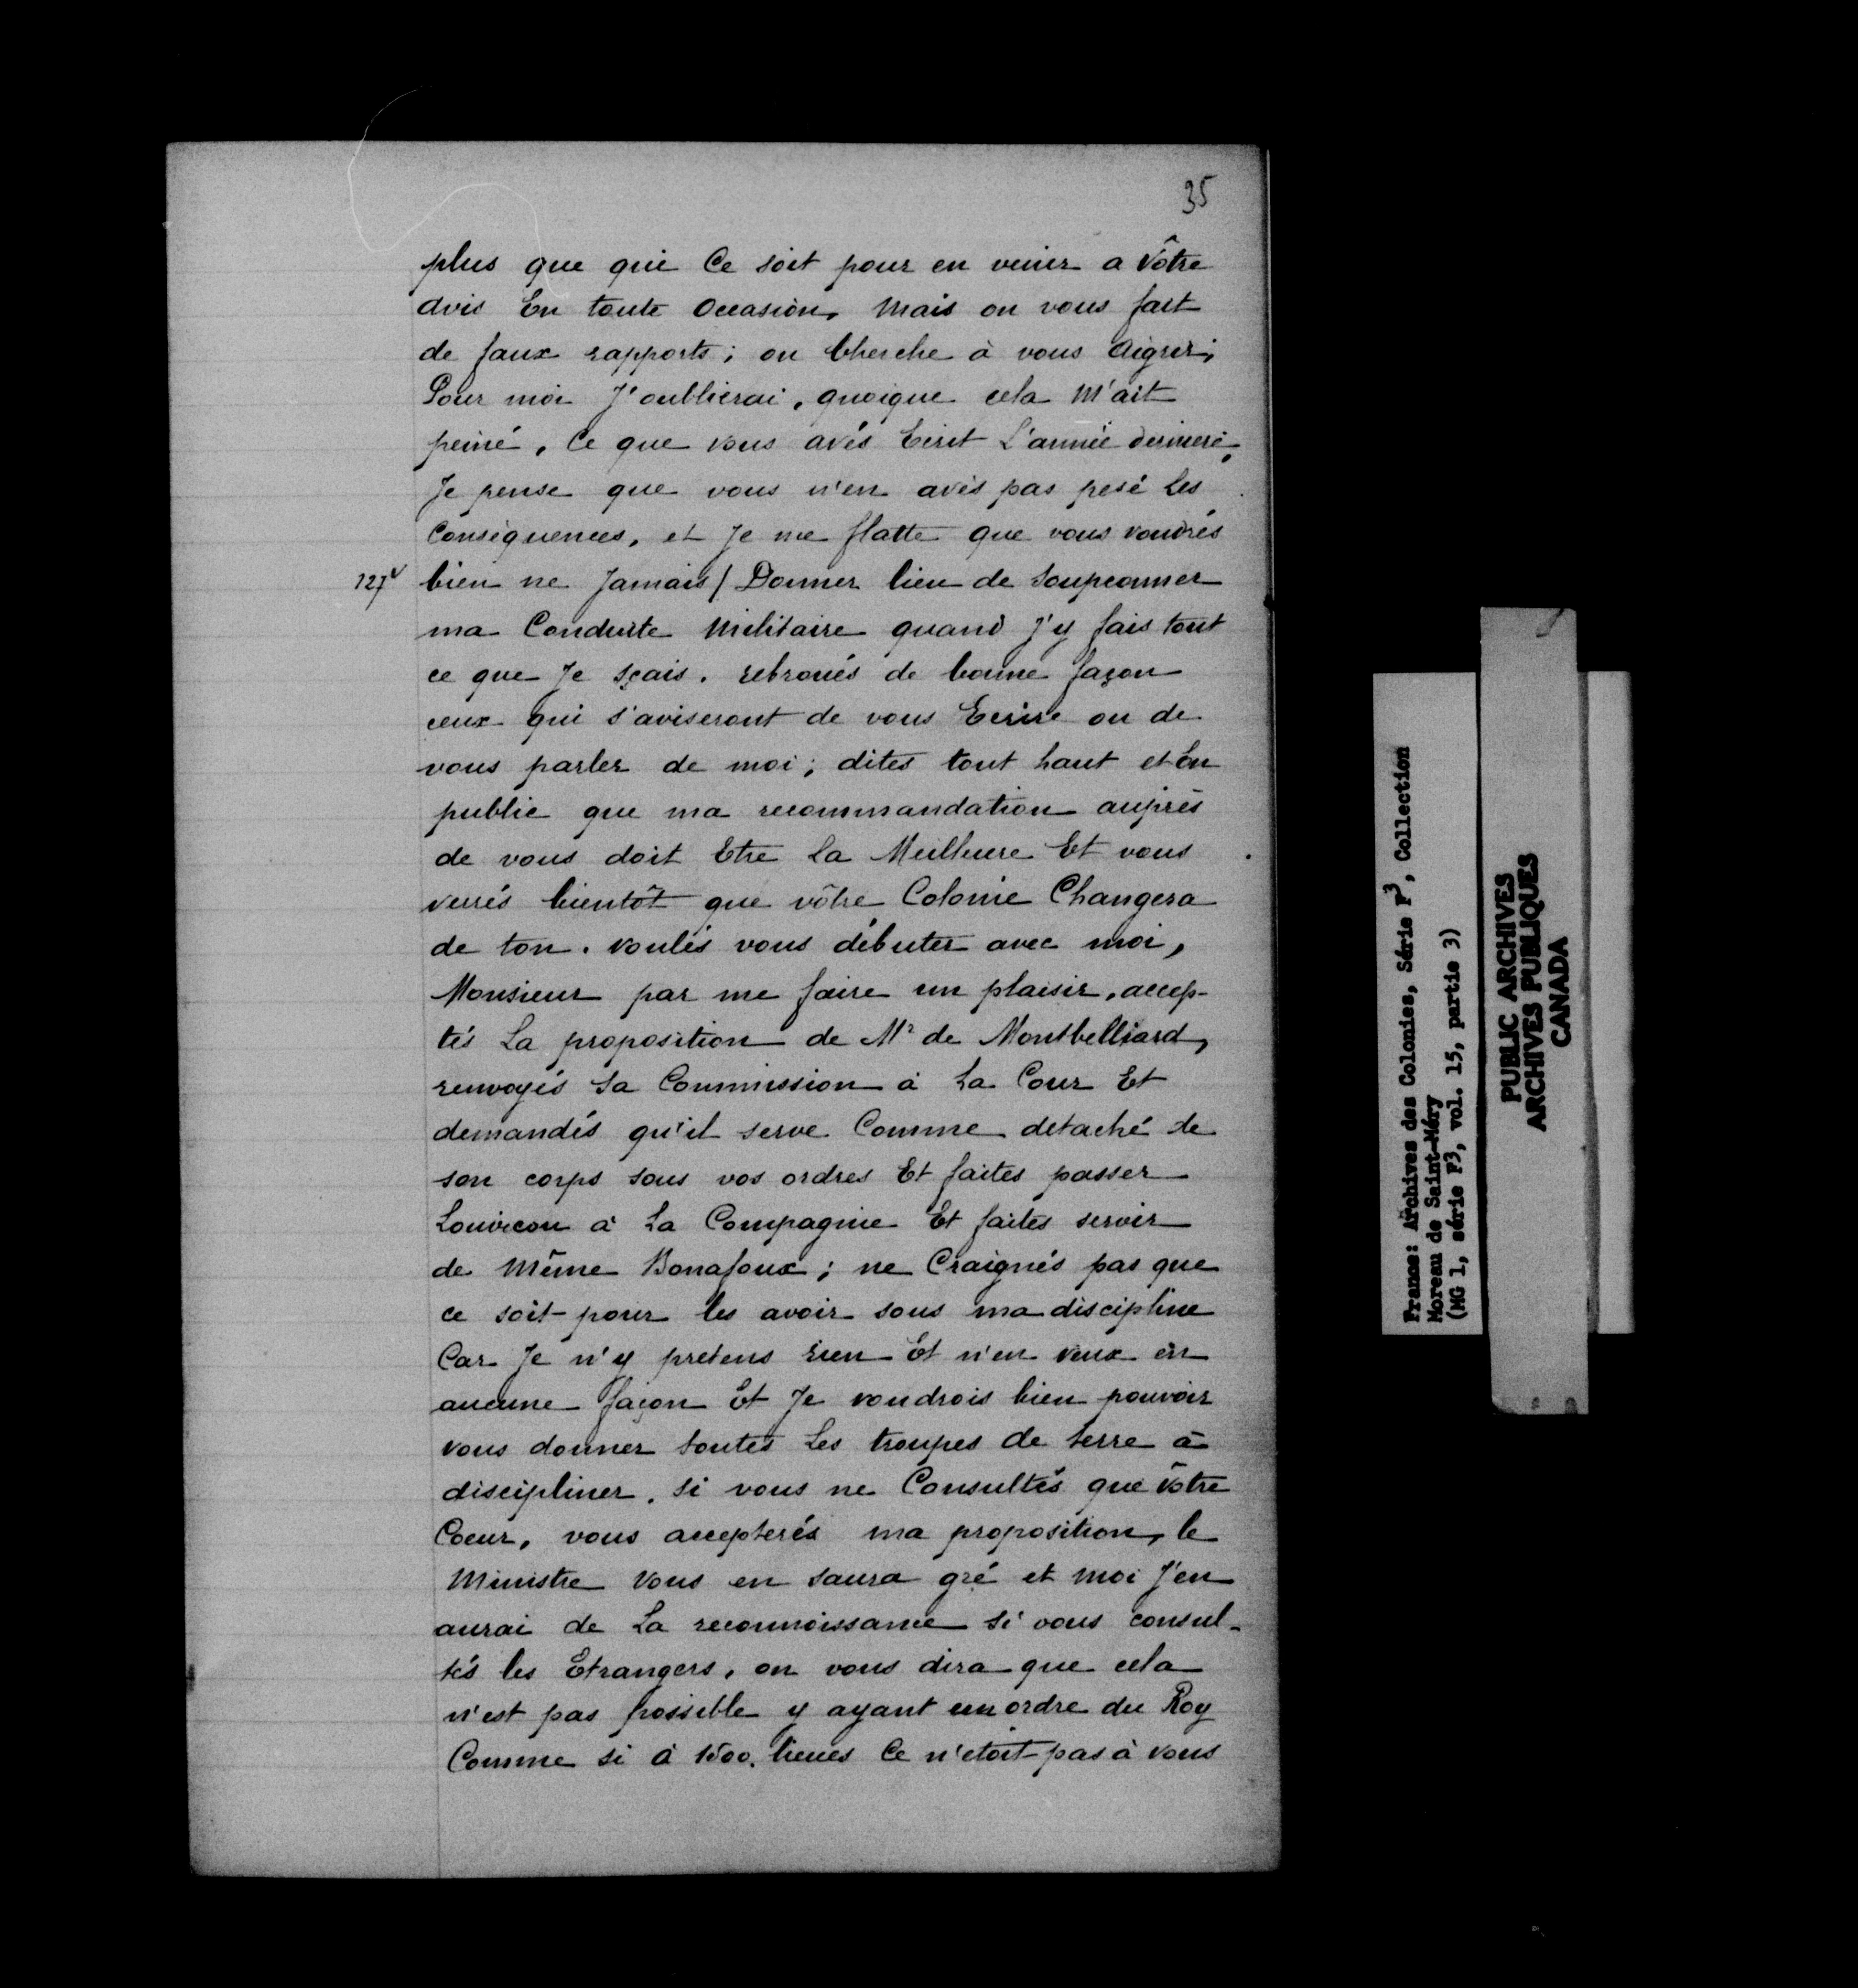 35
plus que qui Ce soit pour en venir a Vôtre
avis En toute Occasion, Mais on vous fait
de faux rapports ; on Cherche à vous Aigrir,
Pour moi J'oublierai, quoique cela M'ait
peiné, Ce que vous avés Ecrit L'année derniere,
Je pense que vous n'en avés pas pesé Les
Consequences, et Je me flatte que vous voudrés
127v bien ne Jamais / Donner lieu de soupconner
ma Conduite Militaire quand J'y fais tout
ce que Je sçais. rebroués de bonne façon
ceux qui s'aviseront de vous Ecrire ou de
vous parler de moi ; dites tout haut et En
public que ma recommandation auprès
de vous doit Etre La Meilleure Et vous
verrés bientôt que vôtre Colonie Changera
de ton. voulés vous débuter avec moi,
Monsieur par me faire un plaisir, accep-
tés La proposition de Mr de Montbelliard,
renvoyés Sa Commission à La Cour Et
demandés qu'il serve Comme detaché de
son corps sous vos ordres Et faites passer
Louvicou à La Compagnie Et faites servir
de Même Bonafoux ; ne Craignés pas que
ce soit pour les avoir sous ma discipline
Car Je n'y pretens rien Et n'en veux en
aucune façon Et Je voudrois bien pouvoir
vous donner toutes Les troupes de terre à
discipliner. si vous ne Consultés que Vôtre
Coeur, vous accepterés ma proposition, le
Ministre Vous en saura gré et Moi J'en
aurai de La reconnoissance si vous consul-
tés les Etrangers, on vous dira que cela
n'est pas possible y ayant un ordre du Roy
Comme si à 1500. lieues Ce n'etoit pas à vous
France: Archives des Colonies, Série F3, Collection
Moreau de Saint-Méry
(MG 1, série F3, vol. 15, partie 3)
PUBLIC ARCHIVES
ARCHIVES PUBLIQUES
CANADA